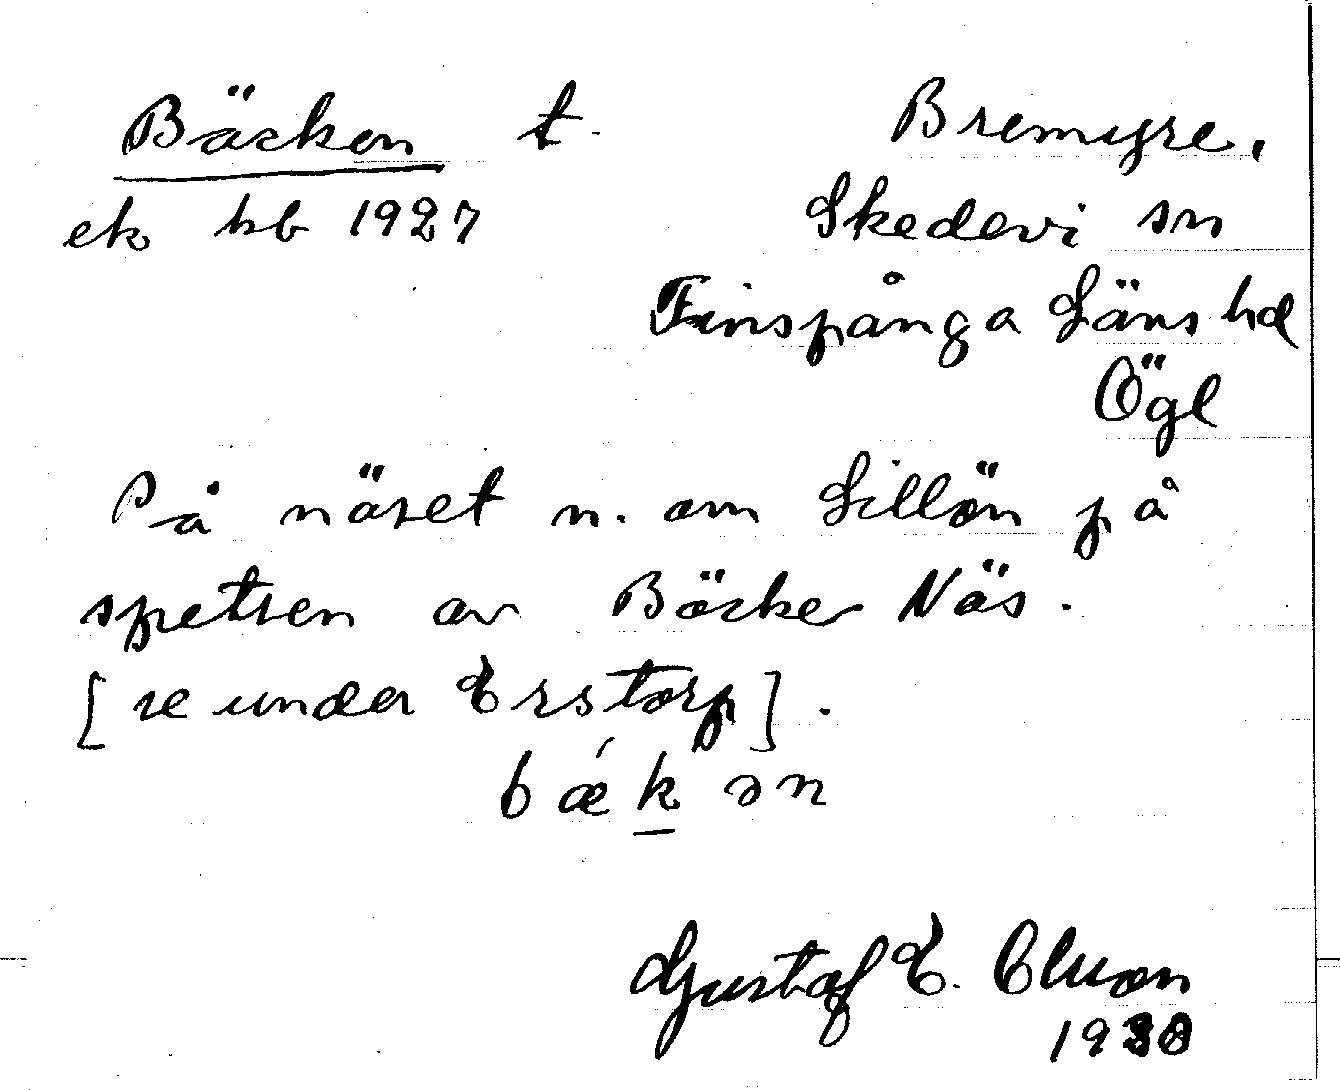 Bäcken t Bremyre,
ek hb 1927 Skedevi sn
Finspånga Läns hd
Ögl
På näset n. om Lillön på
spetsen av Bäcker Näs.
[se under Erstorp].
bǽkən
Gustaf E. Cluson
1930